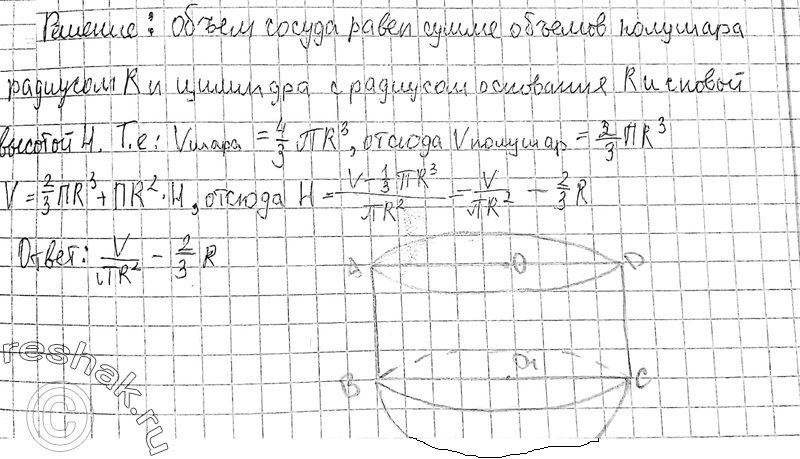 Решение: Объем сосуда равен сумме объемов полушара
радиусом R и цилиндра с радиусом основания R и с новой
высотой H. Т.е: Vшара = 4/3 πR³, отсюда Vполушар = 2/3 ПR³
V = 2/3 ПR³ + ПR² · H, отсюда H = (V - 1/3 πR³)/(πR²) = V/(πR²) - 2/3 R
Ответ: V/(πR²) - 2/3 R
A O D
B O₁ C
reshak.ru
©